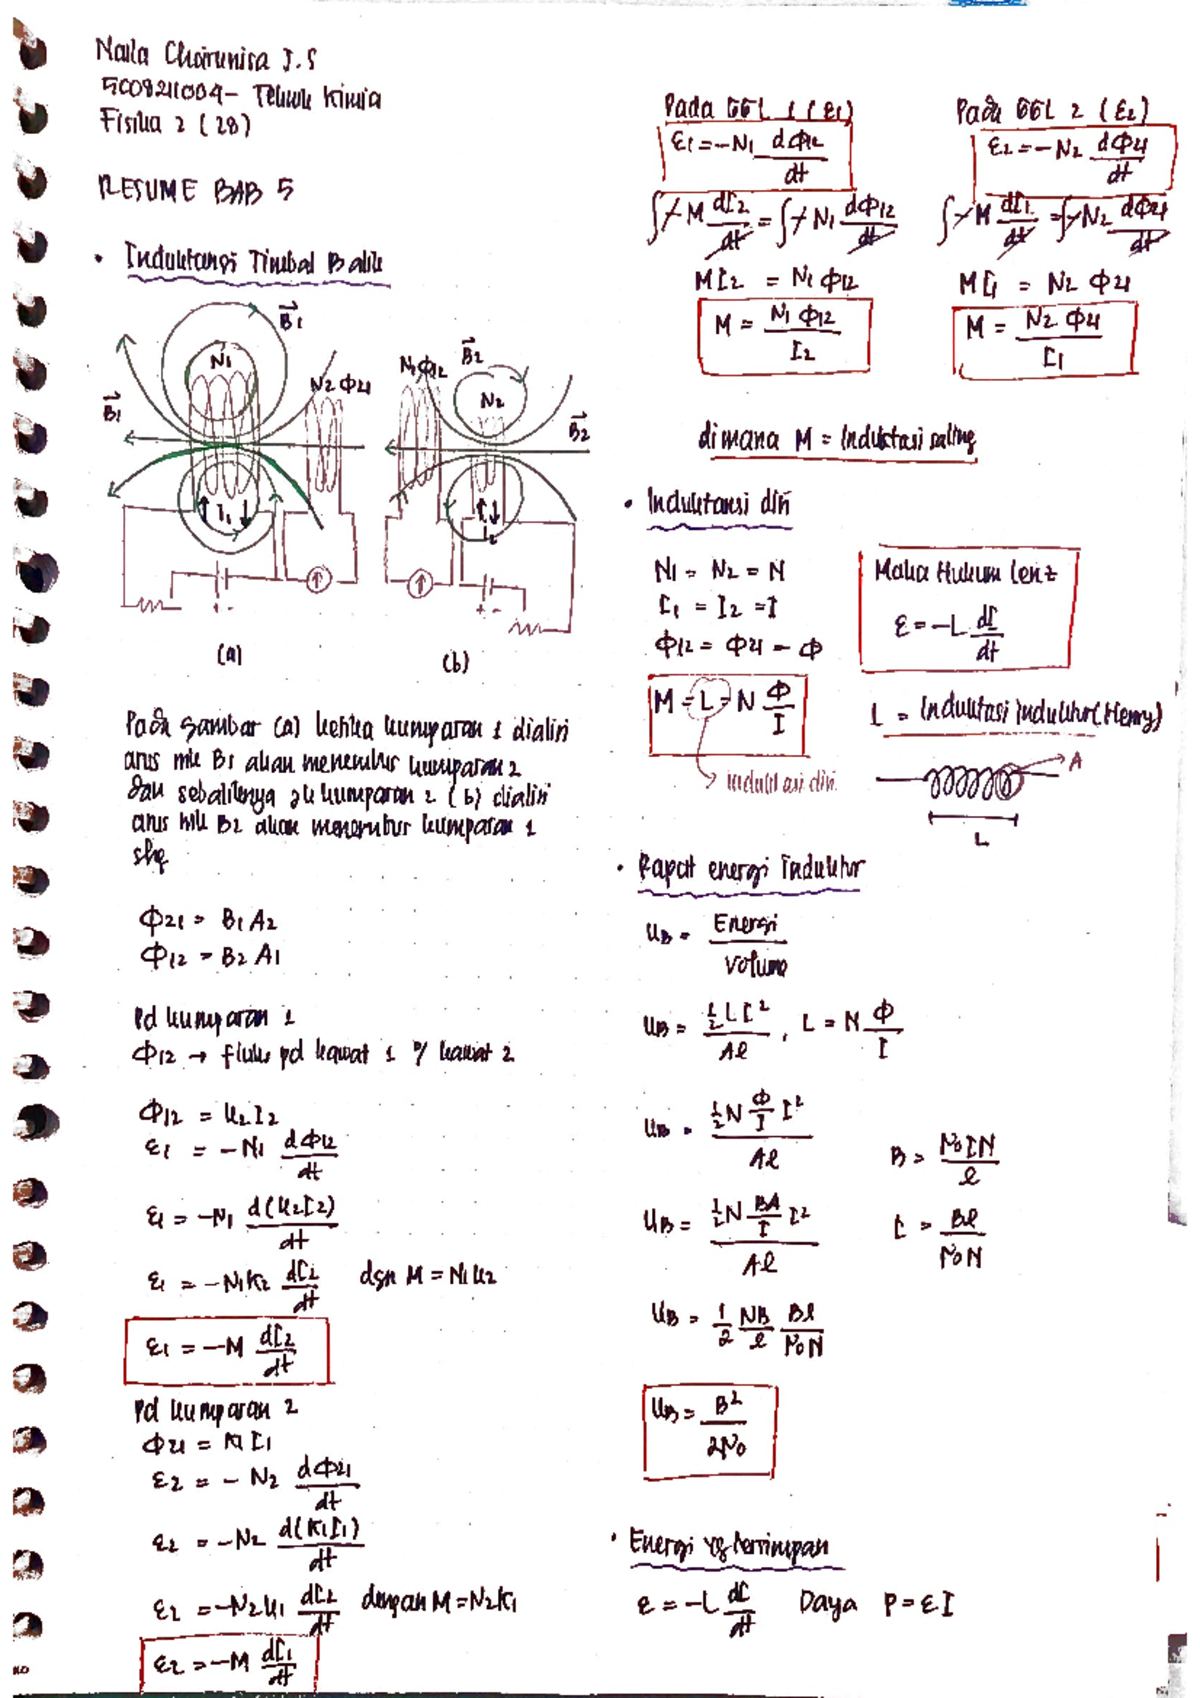 Naila Chairunisa J.S
5008211009 - Teknik Kimia
Fisika 2 (28)
RESUME BAB 5
• Induktansi Timbal Balik
B1
N1
N2 Φ21
B1
I1
+ -
(a)
N1 Φ12
B2
N2
B2
I2
+ -
(b)
Pada gambar (a) ketika kumparan 1 dialiri
arus mk B1 akan menembus kumparan 2
dan sebaliknya jk kumparan 2 (b) dialiri
arus mk B2 akan menembus kumparan 1
shg
Φ21 = B1 A2
Φ12 = B2 A1
Pd kumparan 1
Φ12 → fluks pd kawat 1 o/ kawat 2
Φ12 = k2 I2
ε1 = -N1 dΦ12/dt
ε1 = -N1 d(k2I2)/dt
ε1 = -N1k2 dI2/dt dgn M = N1k2
ε1 = -M dI2/dt
Pd kumparan 2
Φ21 = k1 I1
ε2 = -N2 dΦ21/dt
ε2 = -N2 d(k1I1)/dt
ε2 = -N2k1 dI2/dt dengan M = N2k1
ε2 = -M dI1/dt
Pada GGL 1 (ε1)
ε1 = -N1 dΦ12/dt
∫-M dI2/dt = ∫-N1 dΦ12/dt
MI2 = N1 Φ12
M = N1 Φ12/I2
Pada GGL 2 (ε2)
ε2 = -N2 dΦ21/dt
∫-M dI1/dt = ∫-N2 dΦ21/dt
MI1 = N2 Φ21
M = N2 Φ21/I1
dimana M = Induktasi saling
• Induktansi diri
N1 = N2 = N
I1 = I2 = I
Φ12 = Φ21 = Φ
M = L = N Φ/I
induktasi diri
Maka Hukum Lenz
ε = -L dI/dt
L = Induktasi Induktor (Henry)
A
L
• Rapat energi Induktor
UB = Energi/Volume
UB = ½ L I²/Aℓ , L = N Φ/I
UB = ½ N Φ/I I²/Aℓ
UB = ½ N BA/I I²/Aℓ
B = μ0 I N/ℓ
I = Bℓ/μ0 N
UB = 1/2 NB/ℓ Bℓ/μ0 N
UB = B²/2μ0
• Energi yg tersimpan
ε = -L dI/dt Daya P = εI